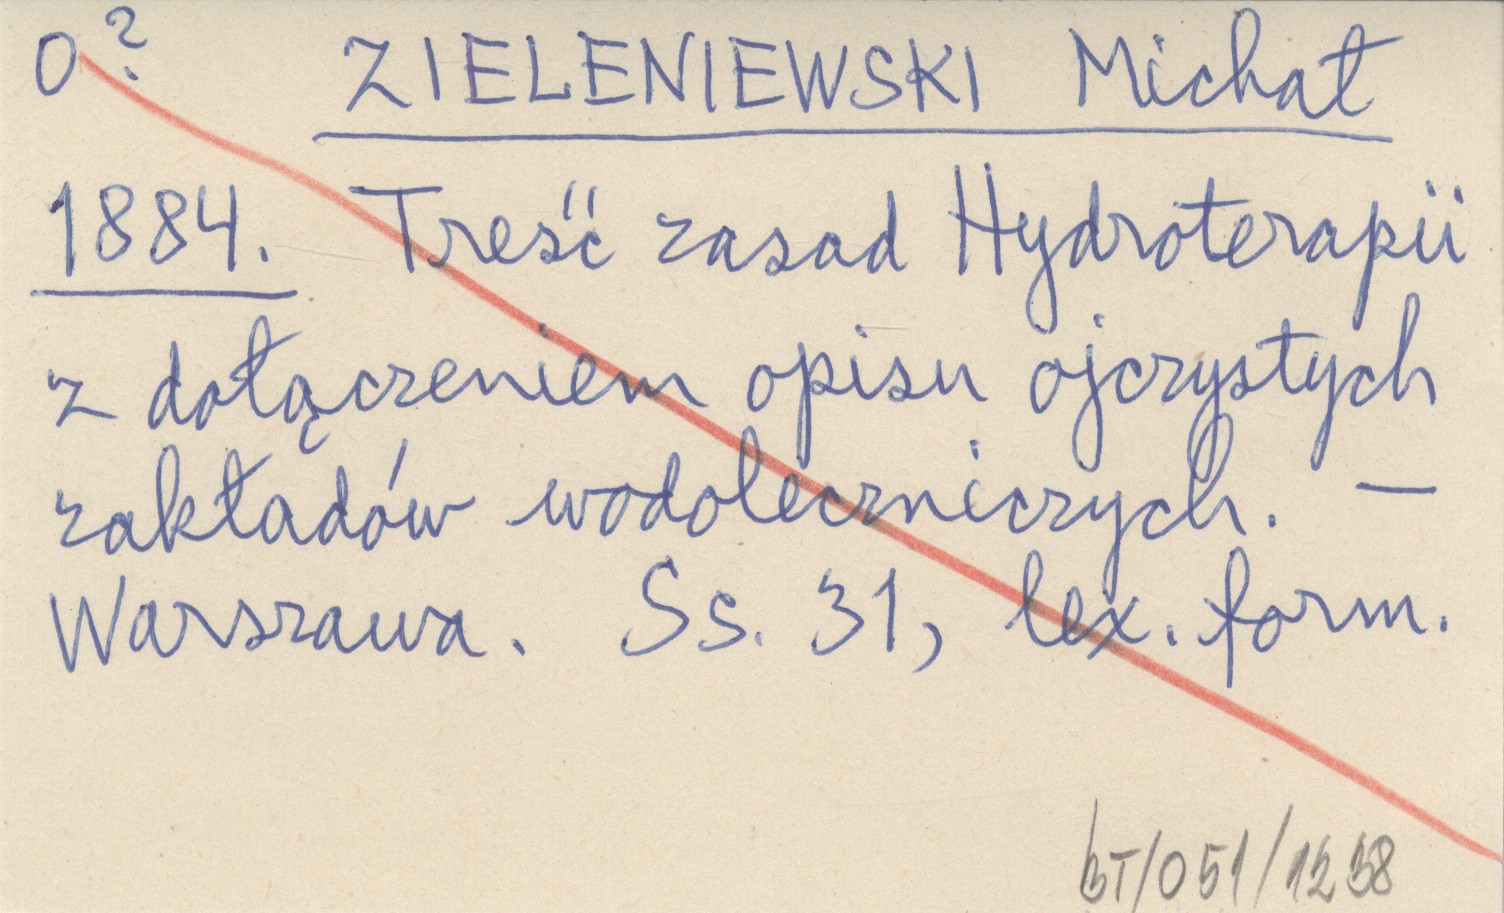 0? ZIELENIEWSKI Michał
1884. Treść zasad Hydroterapii
z dołączeniem opisu ojczystych
zakładów wodoleczniczych. —
Warszawa. Ss. 31, lex. form.
BT/051/1238